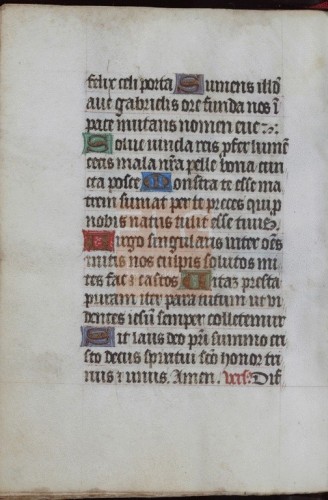 felix celi porta Sumens illd
aue gabrielis ore funda nos i
pace mutans nomen eue
Solue uincla reis pfer lumē
cecis mala nr̄a pelle bona cun
cta posce Monstra te esse ma
trem sumat per te preces qui p
nobis natus tulit esse tuus
Uirgo singularis inter oēs
mitis nos culpis solutos mi
tes fac ⁊ castos Uitaz presta
puram iter para tutum ut vi
dentes iesū semper colletemur
Sit laus deo pr̄i summo cri
sto decus spiritui sc̄o honor tri
nus ⁊ unus. Amen. vers. Diff